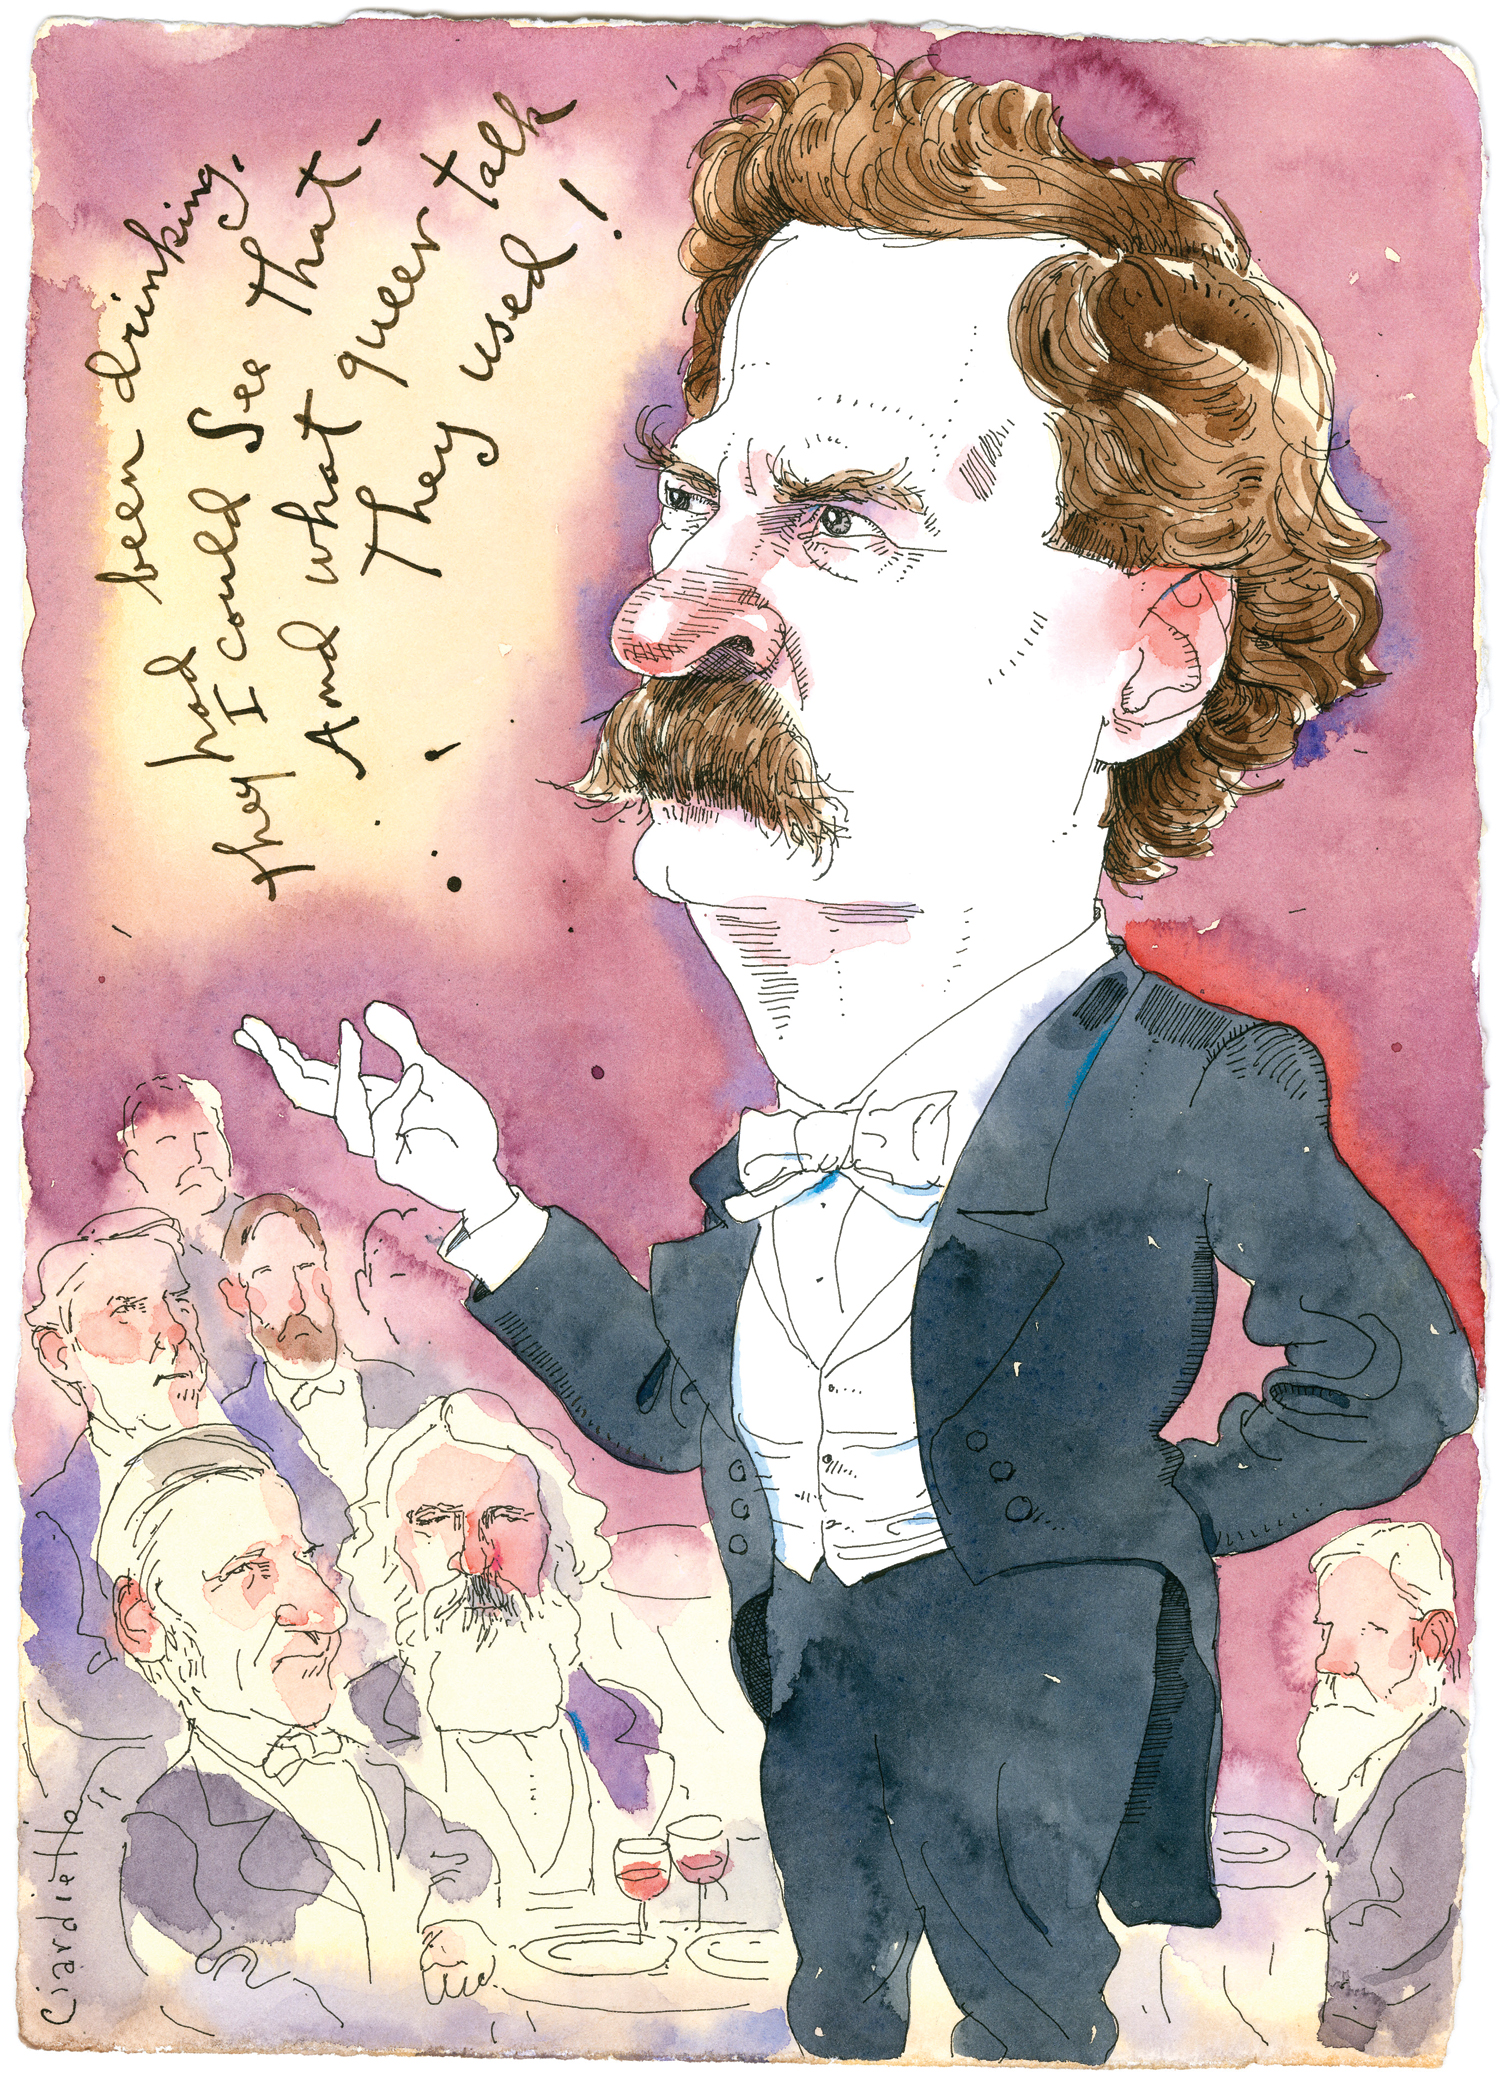 they had been drinking,
I could See that-
And what queer talk
They used!
Ciardiello